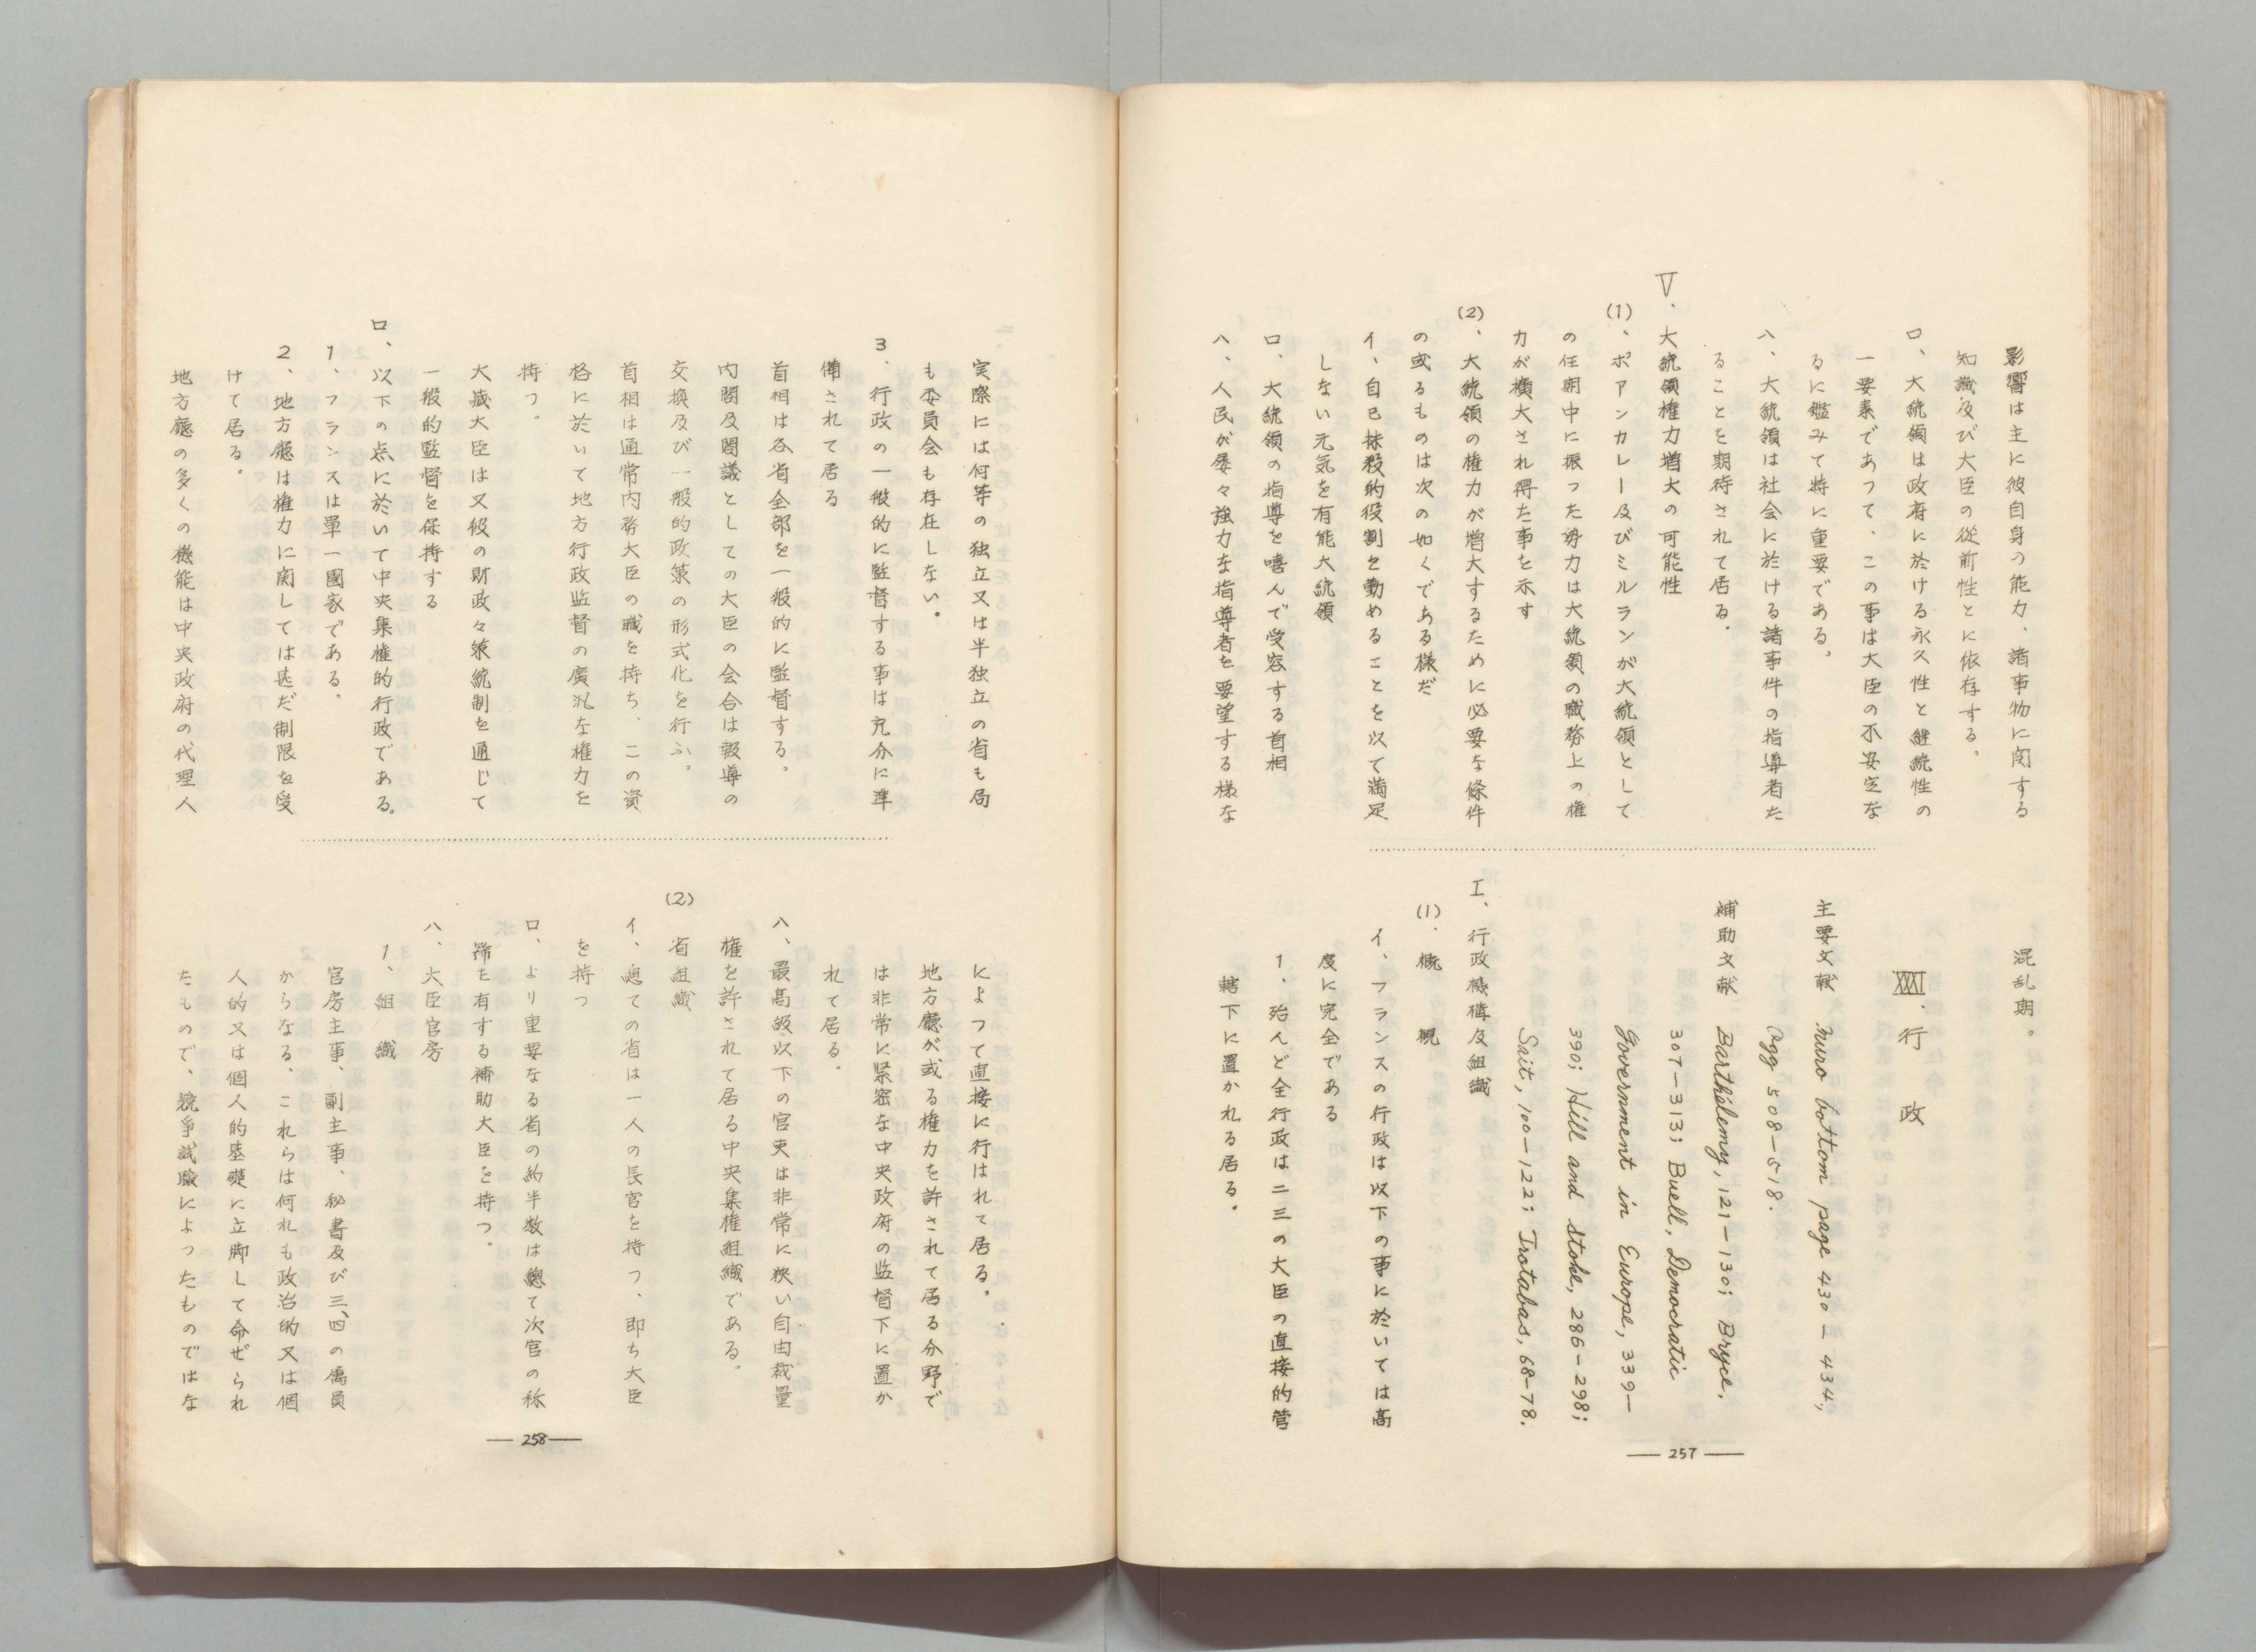 影響は主に彼自身の能力、諸事物に関する
知識及び大臣の従前性とに依存する。
ロ、大統領は政府に於ける永久性と継続性の
一要素であつて、この事は大臣の不安定な
るに鑑みて特に重要である。
ハ、大統領は社会に於ける諸事件の指導者た
ることを期待されて居る。
Ⅴ、大統領権力増大の可能性
(1)、ポアンカレー及びミルランが大統領として
の任期中に振つた勢力は大統領の職務上の権
力が横大され得た事を示す
(2)、大統領の権力が増大するために必要な條件
の或るものは次の如くである様だ
イ、自己抹殺的役割を勤めることを以て満足
しない元気を有能大統領
ロ、大統領の指導を喜んで受容する首相
ハ、人民が屡々強力な指導者を要望する様な
混乱期。
XXXI、行 政
主要文献 Muro bottom page 430—434,
Ogg 508—518.
補助文献 Barthélemy, 121—130; Bryce,
307—313; Buell, Democratic
Government in Europe, 339—
390; Hill and Stoke, 286—298;
Sait, 100—122; Trotabas, 68—78.
I、行政機構及組織
(1)、概 観
イ、フランスの行政は以下の事に於いては高
度に完全である
1、殆んど全行政は二三の大臣の直接的管
轄下に置かれる居る。
— 257 —
実際には何等の独立又は半独立の省も局
も委員会も存在しない。
3、行政の一般的に監督する事は充分に準
備されて居る
首相は各省全部を一般的に監督する。
内閣及閣議としての大臣の会合は報導の
交換及び一般的政策の形式化を行ふ。
首相は通常内務大臣の職を持ち、この資
格に於いて地方行政監督の廣汎な権力を
持つ。
大蔵大臣は又彼の財政々策統制を通じて
一般的監督を保持する
ロ、以下の点に於いて中央集権的行政である。
1、フランスは単一國家である。
2、地方廳は権力に関しては甚だ制限を受
けて居る。
地方廳の多くの機能は中央政府の代理人
によつて直接に行はれて居る。
地方廳が或る権力を許されて居る分野で
は非常に緊密な中央政府の監督下に置か
れて居る。
ハ、最高級以下の官吏は非常に狹い自由裁量
権を許されて居る中央集権組織である。
(2) 省組織
イ、總ての省は一人の長官を持つ、即ち大臣
を持つ
ロ、より重要なる省の約半数は總て次官の称
を有する補助大臣を持つ。
ハ、大臣官房
1、組 織
官房主事、副主事、秘書及び三、四の属員
からなる、これらは何れも政治的又は個
人的又は個人的基礎に立脚して命ぜられ
たもので、競争試験によつたものではな
— 258 —